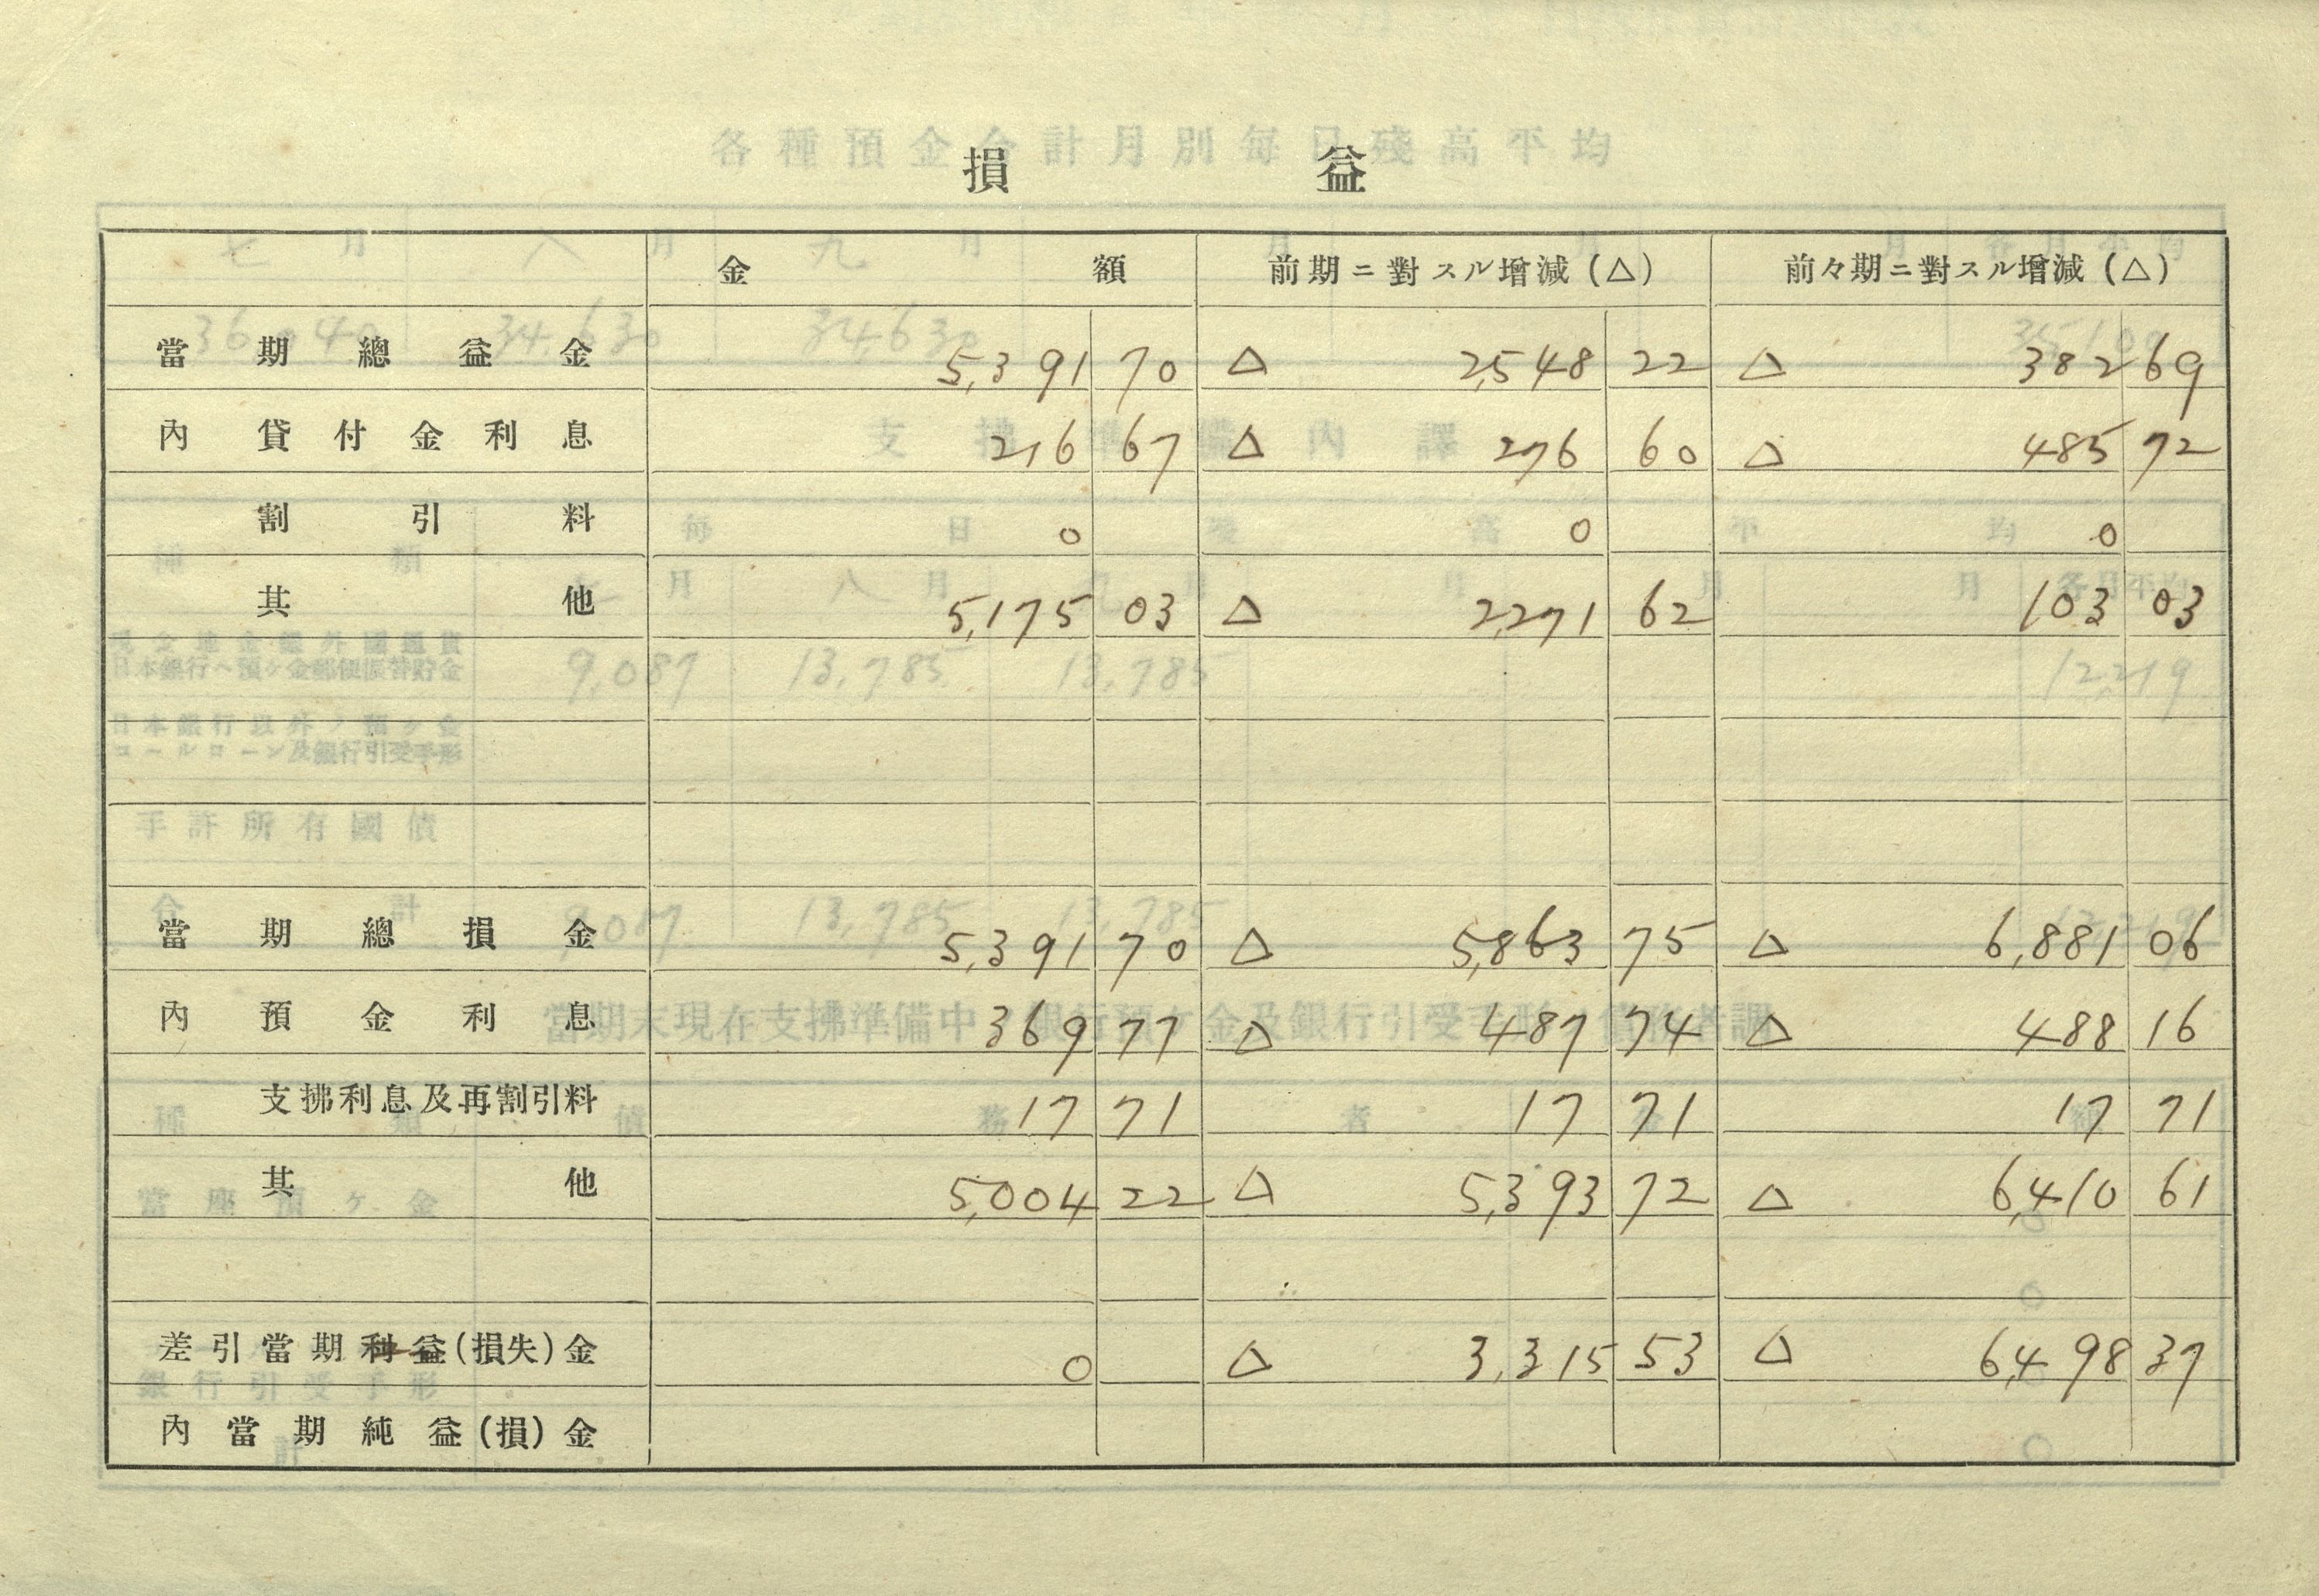 損益
金額 前期ニ對スル增減(△) 前々期ニ對スル增減(△)
當期總益金 5,391 70 △ 2,548 22 △ 382 69
內貸付金利息 216 67 △ 276 60 △ 485 72
割引料 0 0 0
其他 5,175 03 △ 2,271 62 103 03
當期總損金 5,391 70 △ 5,863 75 △ 6,881 06
內預金利息 369 77 △ 487 74 △ 488 16
支拂利息及再割引料 17 71 17 71 17 71
其他 5,004 22 △ 5,393 72 △ 6,410 61
差引當期利益(損失)金 0 △ 3,315 53 △ 6,498 37
內當期純益(損)金